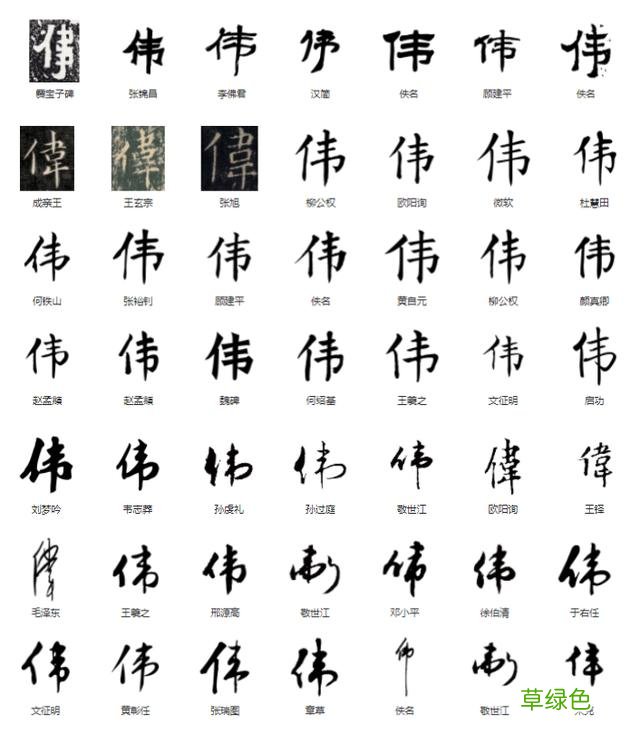 偉 伟 伟 伟 伟 伟 伟
爨宝子碑 张锦昌 李佛君 汉简 佚名 顾建平 佚名
偉 偉 偉 伟 伟 伟 伟
成亲王 王玄宗 张旭 柳公权 欧阳询 微软 杜慧田
伟 伟 伟 伟 伟 伟 伟
何铁山 张裕钊 顾建平 佚名 黄自元 柳公权 颜真卿
伟 伟 伟 伟 伟 伟 伟
赵孟頫 赵孟頫 魏碑 何绍基 王羲之 文征明 启功
伟 伟 伟 伟 伟 偉 偉
刘梦吟 孙虔礼 孙过庭 敬世江 欧阳询 王铎
偉 伟 伟 伟 伟 伟
毛泽东 王羲之 敬世江 邓小平 徐伯清 于右任
伟 伟 伟 伟 伟 伟
文征明 黄彰任 张瑞图 章草 佚名 敬世江
草绿色